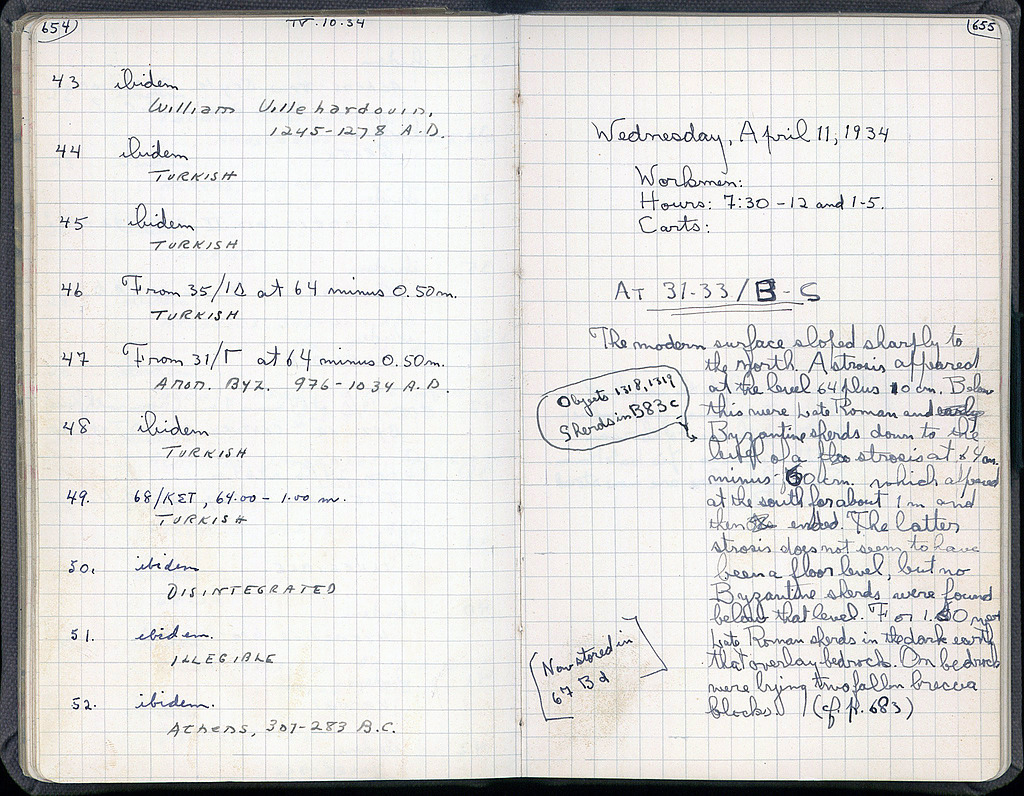 654
IV.10.34
43 ibidem
William Villehardouin,
1245-1278 A.D.
44 ibidem
TURKISH
45 ibidem
TURKISH
46 From 35/ΙΔ at 64 minus 0.50m.
TURKISH
47 From 31/Γ at 64 minus 0.50m.
Anon. Byz. 976-1034 A.D.
48 ibidem
TURKISH
49. 68/ΚΣΤ, 64.00 - 1.00 m.
TURKISH
50. ibidem
DISINTEGRATED
51. ibidem.
ILLEGIBLE
52. ibidem.
Athens, 307-283 B.C.
655
Wednesday, April 11, 1934
Workmen:
Hours: 7:30 - 12 and 1-5.
Carts:
AT 31-33/B-S
The modern surface sloped sharply to
the north. A strosis appeared
at the level 64 plus 10 cm. Below
this were Late Roman and early
Byzantine sherds down to the
level of a strosis at 64 m.
minus 60 cm. which appeared
at the south for about 1 m and
then ended. The latter
strosis does not seem to have
been a floor level, but no
Byzantine sherds were found
below that level. For 1.60 m
Late Roman sherds in the dark earth
that overlay bedrock. On bedrock
were lying two fallen breccia
blocks. (cf. p. 683)
Objects 1318, 1319
Sherds in B83c
Now stored in
67 Bd